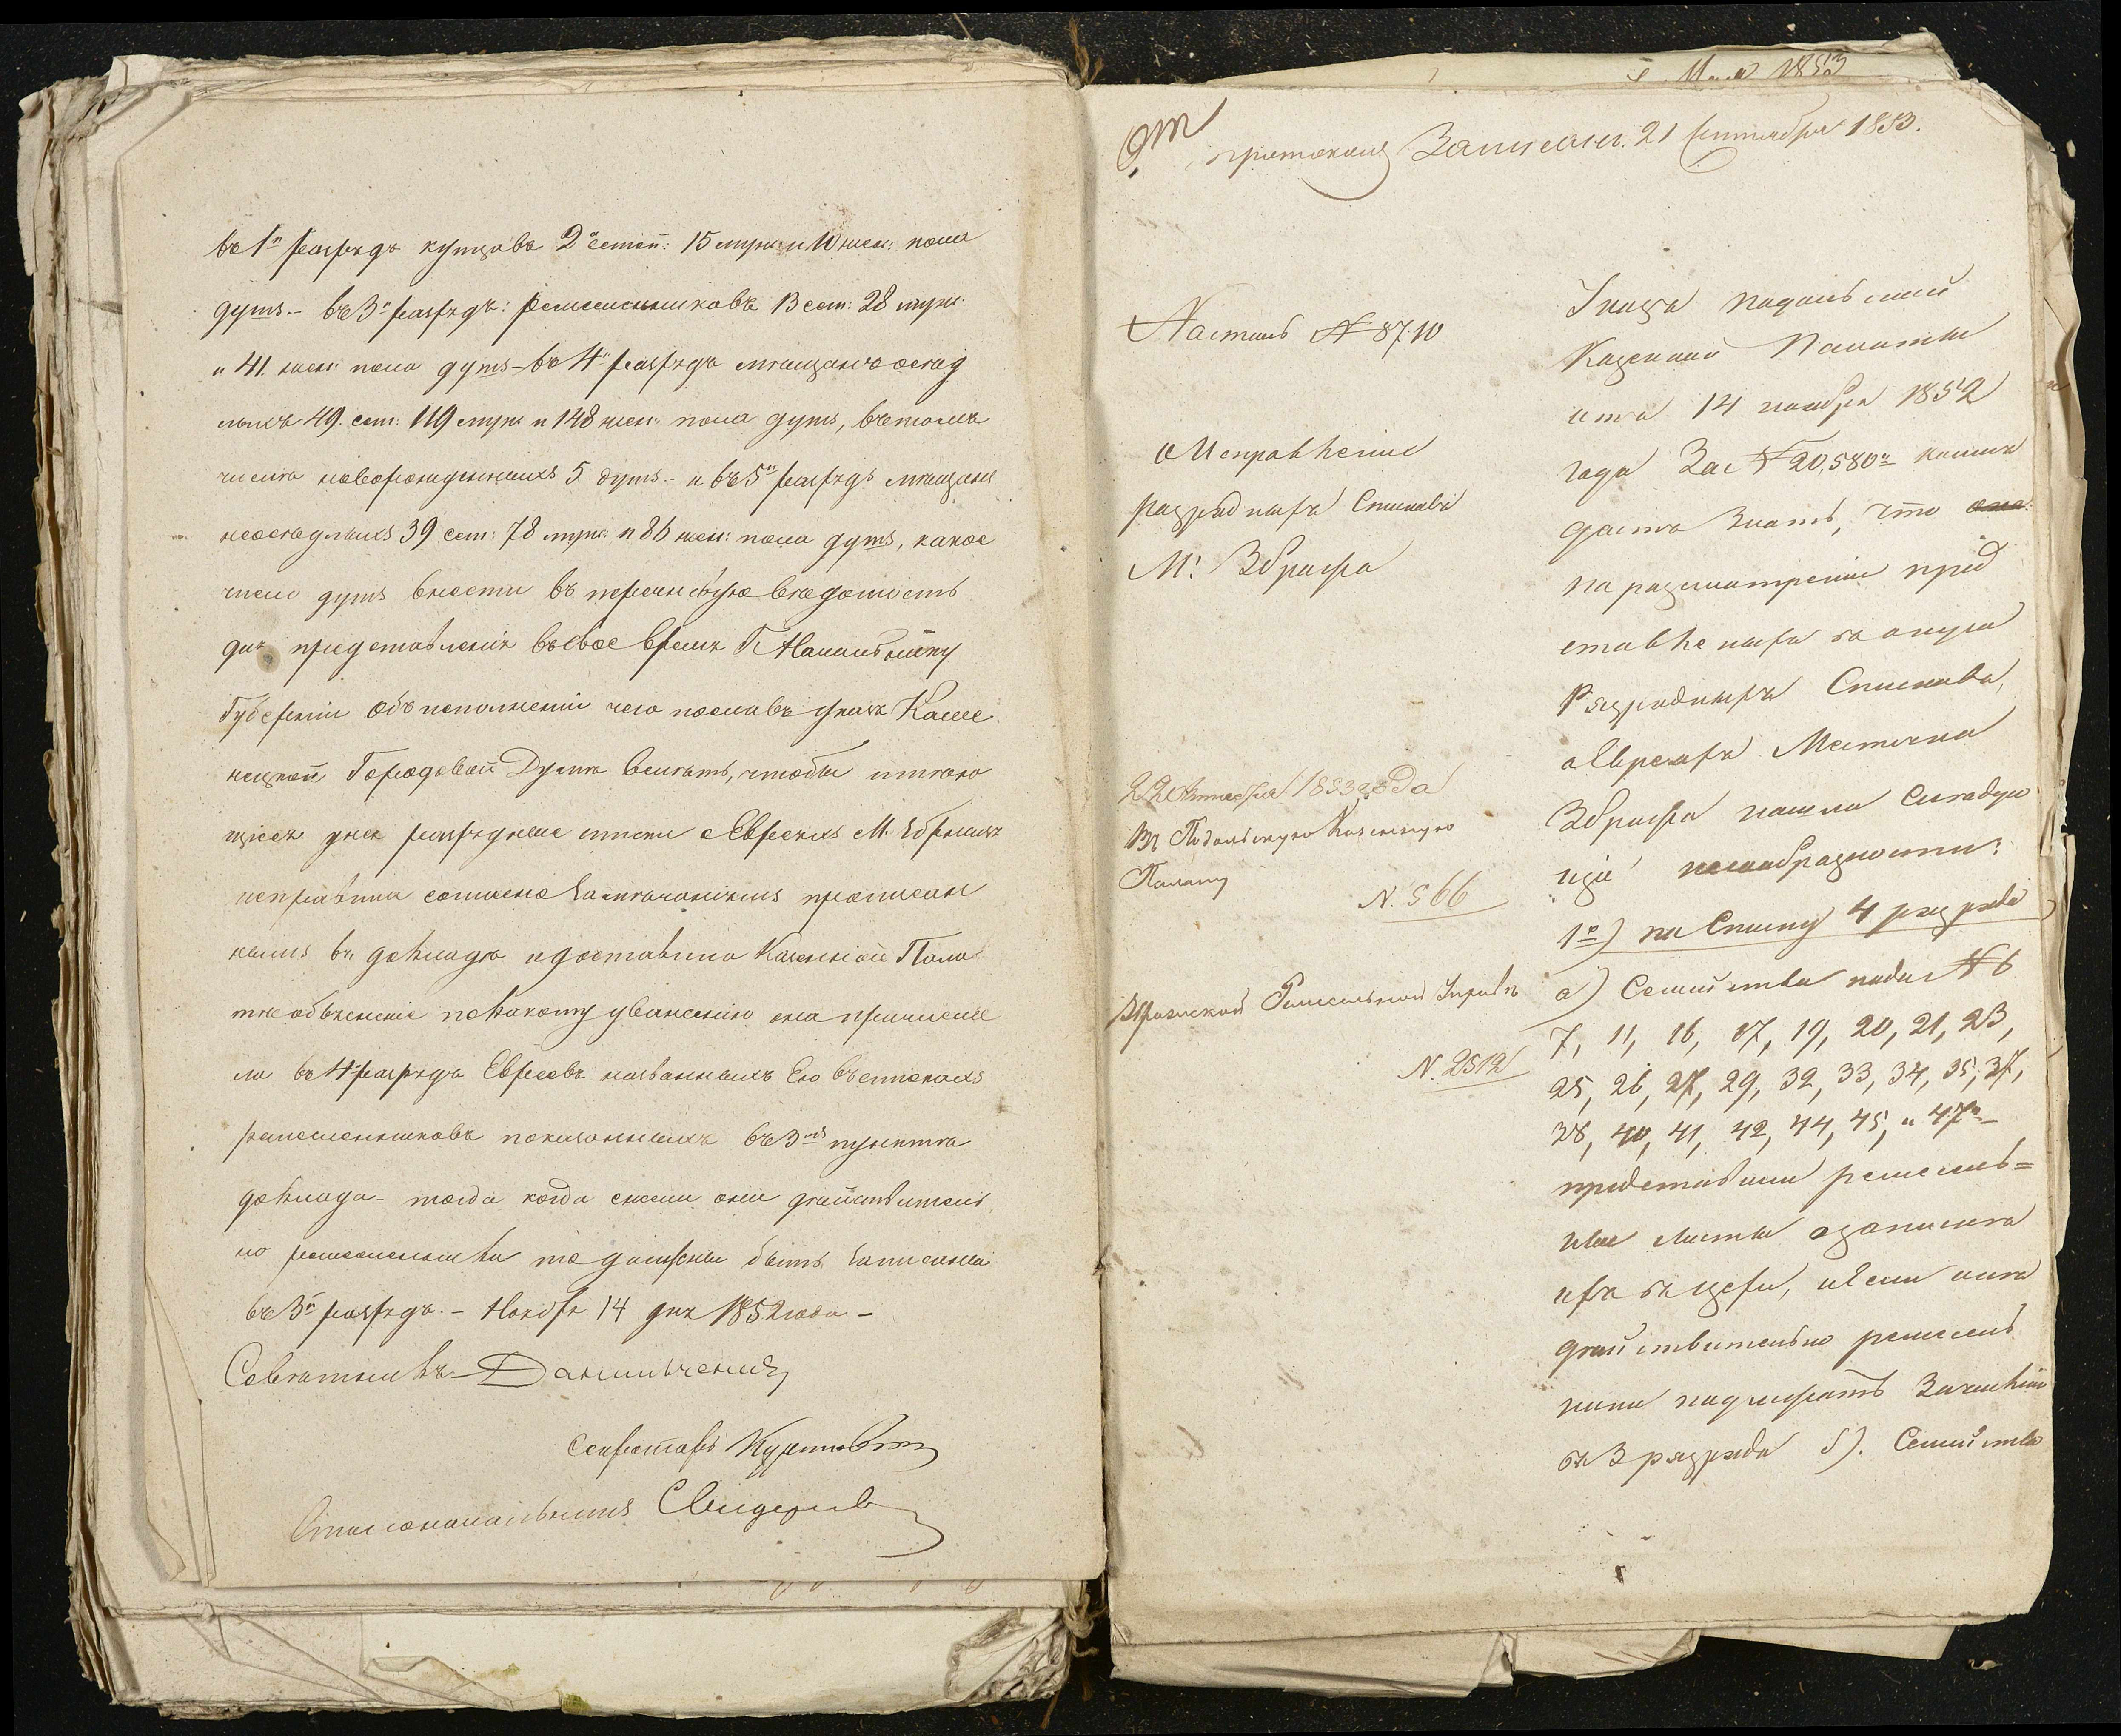 въ 1й разрядъ купцовъ 2 семей: 15 муж: и 10 жен: пола
душъ. – въ 3й разрядъ: ремесленниковъ 13 сем: 28 муж:
и 41 жен: пола душъ – въ 4й разрядъ мѣщанъ осѣд
лыхъ 49 сем: 119 муж: и 148 жен: пола душъ, въ томъ
числѣ новорожденныхъ 5 душъ – и въ 5й разрядъ мѣщанъ
неосѣдлыхъ 39 сем: 78 муж: и 86 жен: пола душъ, какое
число душъ внести въ перечневую вѣдомость
для представленія въ свое время Г. Начальнику
Губерніи Объ исполненіи чего пославъ указъ Каме
нецкой Городовой Думѣ велѣть, чтобы
разрядные списки о Евреяхъ М. Збрижъ
исправила согласно замѣчаніямъ прописан
нымъ въ докладѣ и доставила Казенной Пала
тѣ объясненіе по какому уваженію она причисли
ла въ 4й разрядъ Евреевъ названныхъ Ею въ спискахъ
ремесленниковъ показанныхъ въ 3мъ пунктѣ
доклада – тогда когда если они дѣйствитель
но ремесленники то должны быть записаны
въ 3й разрядъ. – Ноября 14 дня 1852 года –
Совѣтникъ Данильченко
Секретарь
Столоначальникъ
Мая 1853
протоколъ Записанъ 21 Сентября 1853.
Насталь № 8710
О Исправленіи
разрядныхъ Списковъ
М. Збрижа
22 Октября 1853 года
Въ Подольскую Казенную
Палату
N. 566
Ремесленной Управѣ
N. 2512
Указъ Подольской
Казенной Палаты
отъ 14 ноября 1852
года За № 20,580м коимъ
даетъ знать, что она
по разсмотреніи пред
ставленныхъ въ оную
Разрядныхъ Списковъ,
о Евреяхъ Мѣстечка
Збрижа нашла Слѣдую
щіе несообразности:
1е) по Списку 4 разряда
а) Семейства подъ № 6
7, 11, 16, 17, 19, 20, 21, 23,
25, 26, 27, 29, 32, 33, 34, 35, 37,
38, 40, 41, 42, 44, 45, и 47м –
представили ремеслен=
ные листы о запискѣ
ихъ въ цехи, и Если они
дѣйствительно ремеслен
ники подлежатъ Зачисленію
въ 3 разрядъ б). Семейства